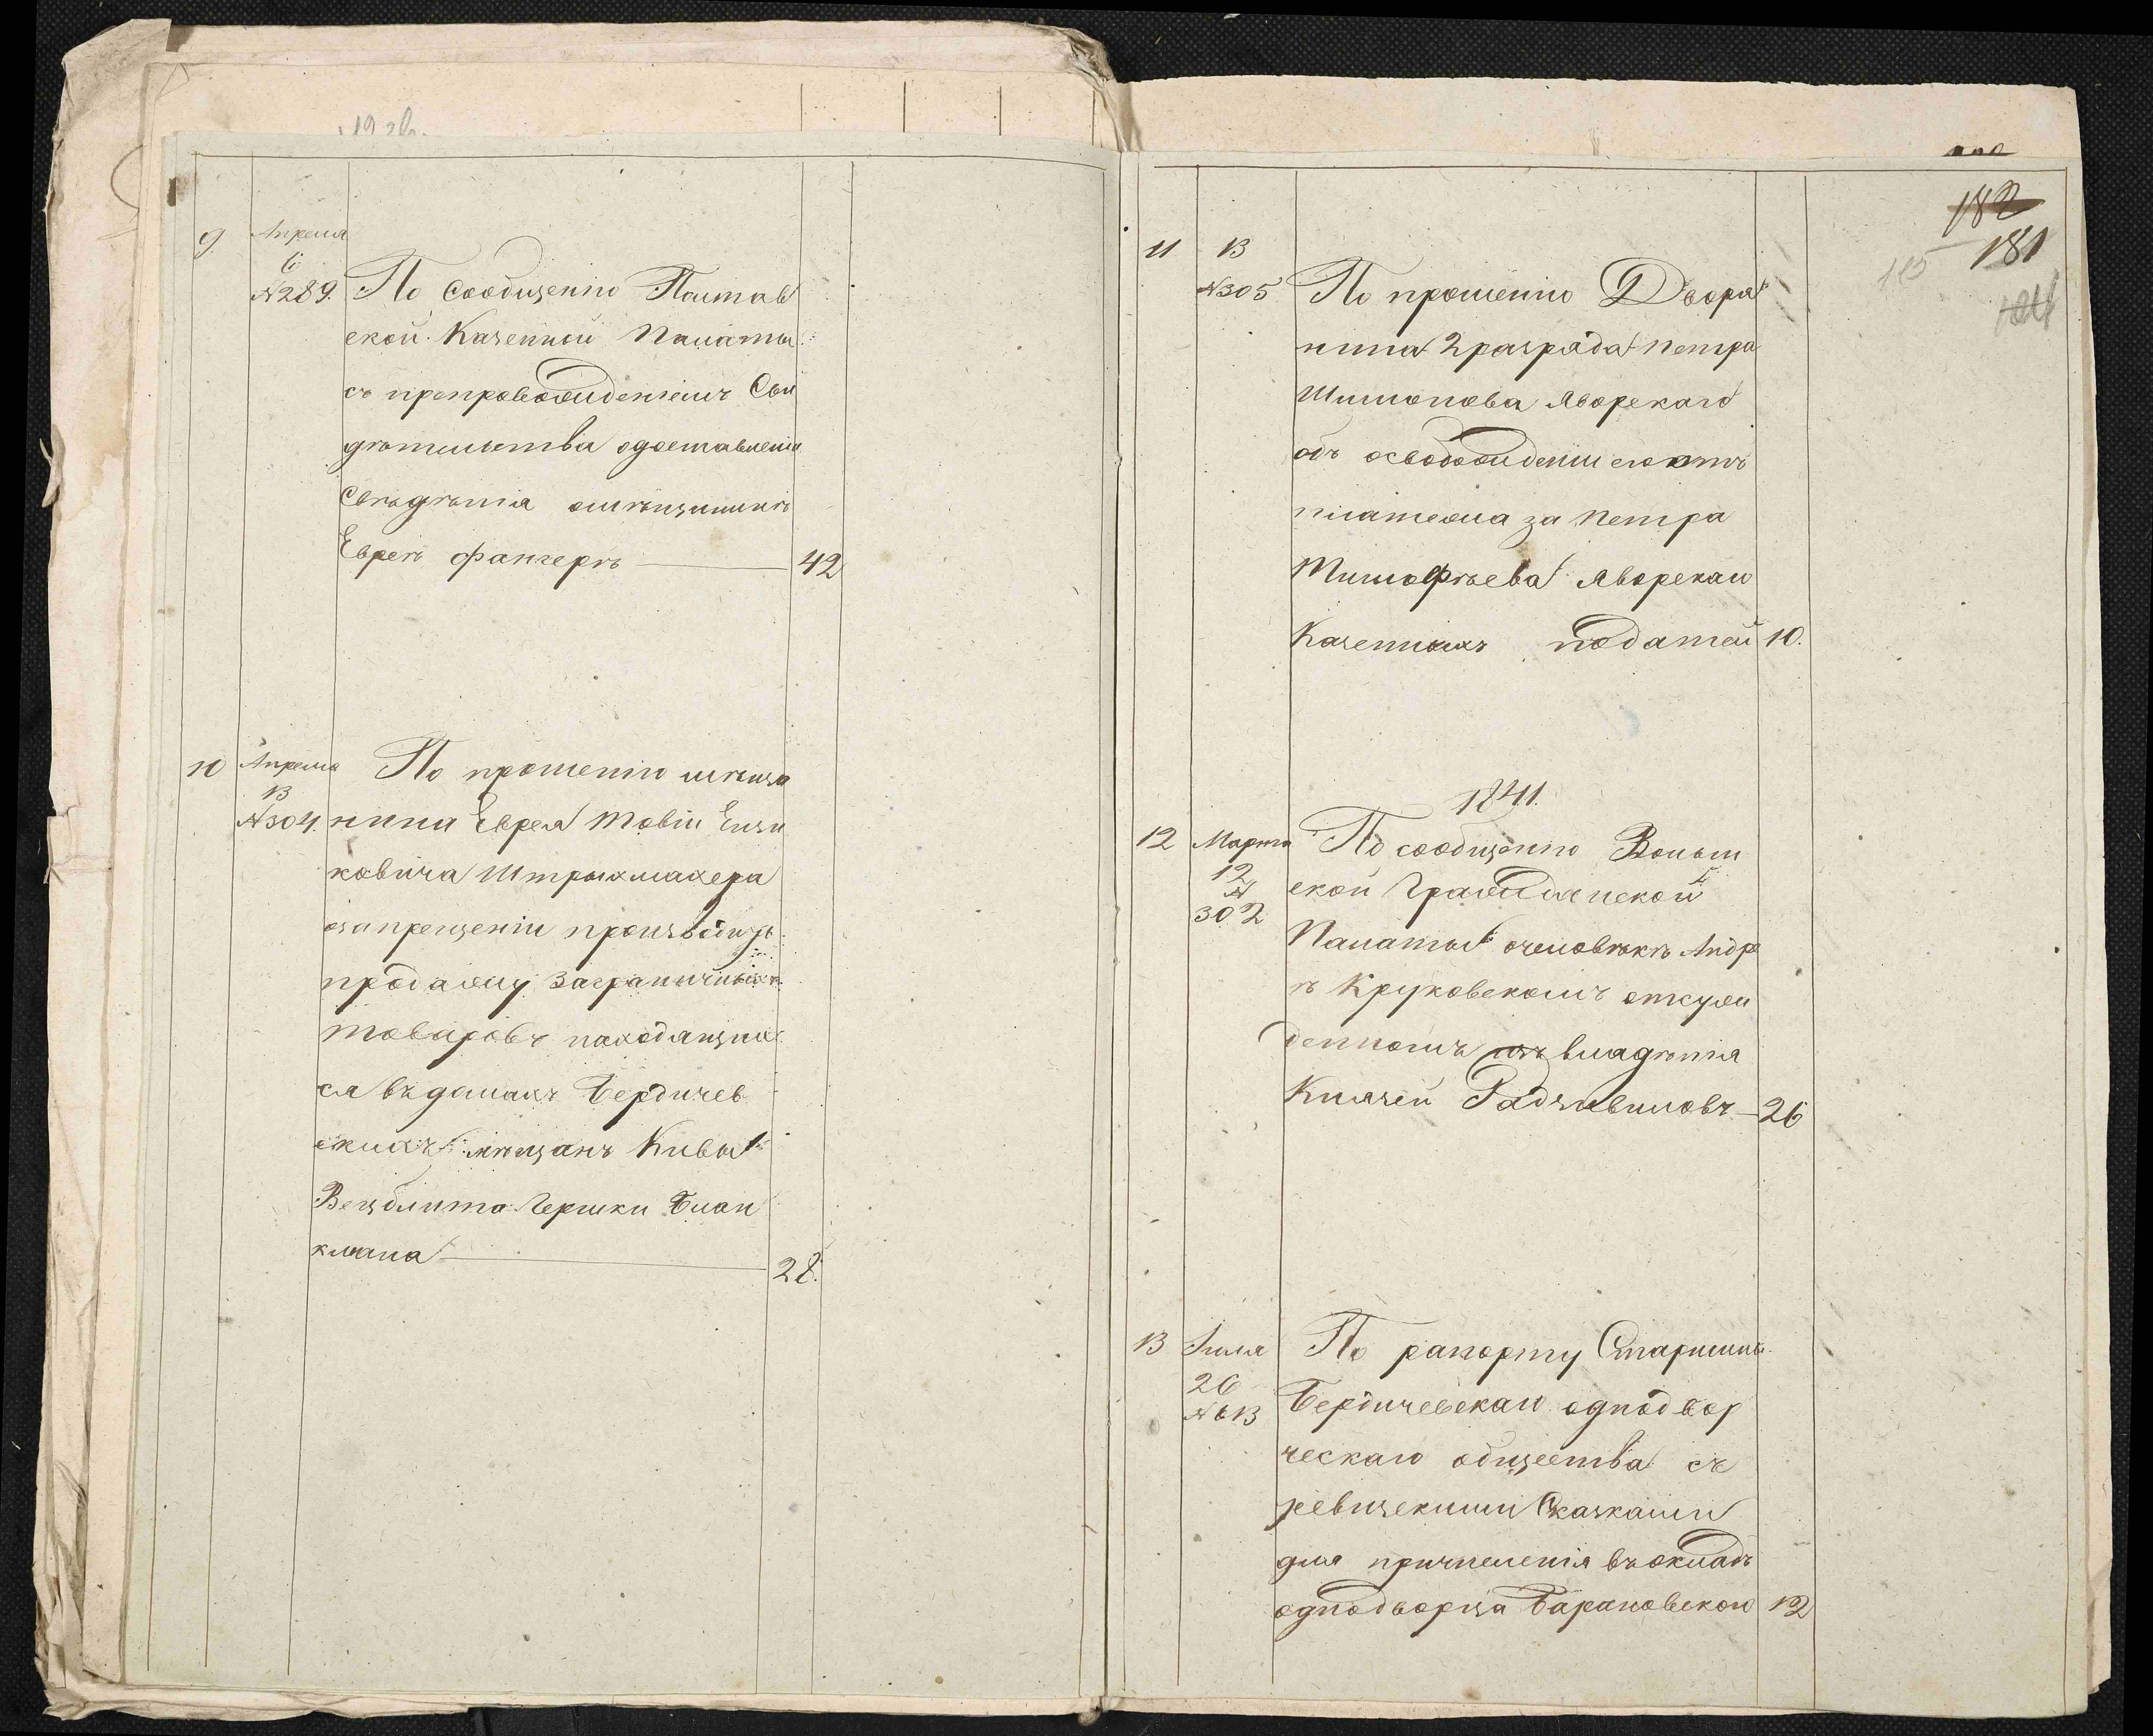 9. Апреля
6
№289. По сообщенію Полтав
ской Казенной Палаты
съ препровожденіемъ Сви
дѣтельства одоставленіи
Свѣдѣнія омѣщанинѣ
Евреѣ Фангерѣ 42
10 Апреля По прошенію мѣща
13
№304. нина Еврея Товіи Ици
ковича Штрыхмахера
озапрещеніи производить
продажу заграничныхъ
товаровъ находящих
ся въдомахъ Бердичев
скихъ мѣщанъ Кивы
Вецблита Гершки Блан
кмана 28.
182
181
185
11 13
№305 По прошенію Дворя
нина 2 разряда Петра
Шимонова Яворскаго
объ освобожденіи его отъ
платежа за Петра
Тимофѣева Яворскаго
Казенныхъ податей 10.
1841.
12 Марта По сообщенію Волын
12 ской Гражданской
№
302
Палаты очеловѣкѣ Андре
ѣ Круковскомъ отсуж
денномъ изъ владѣнія
Князей Радзивиловъ 26
13 Іюля По рапорту Старшины
26 Бердичевскаго однодвор
№613
ческаго общества съ
ревизскими Сказками
для причисленія въокладъ
однодворца Барановскаго 12